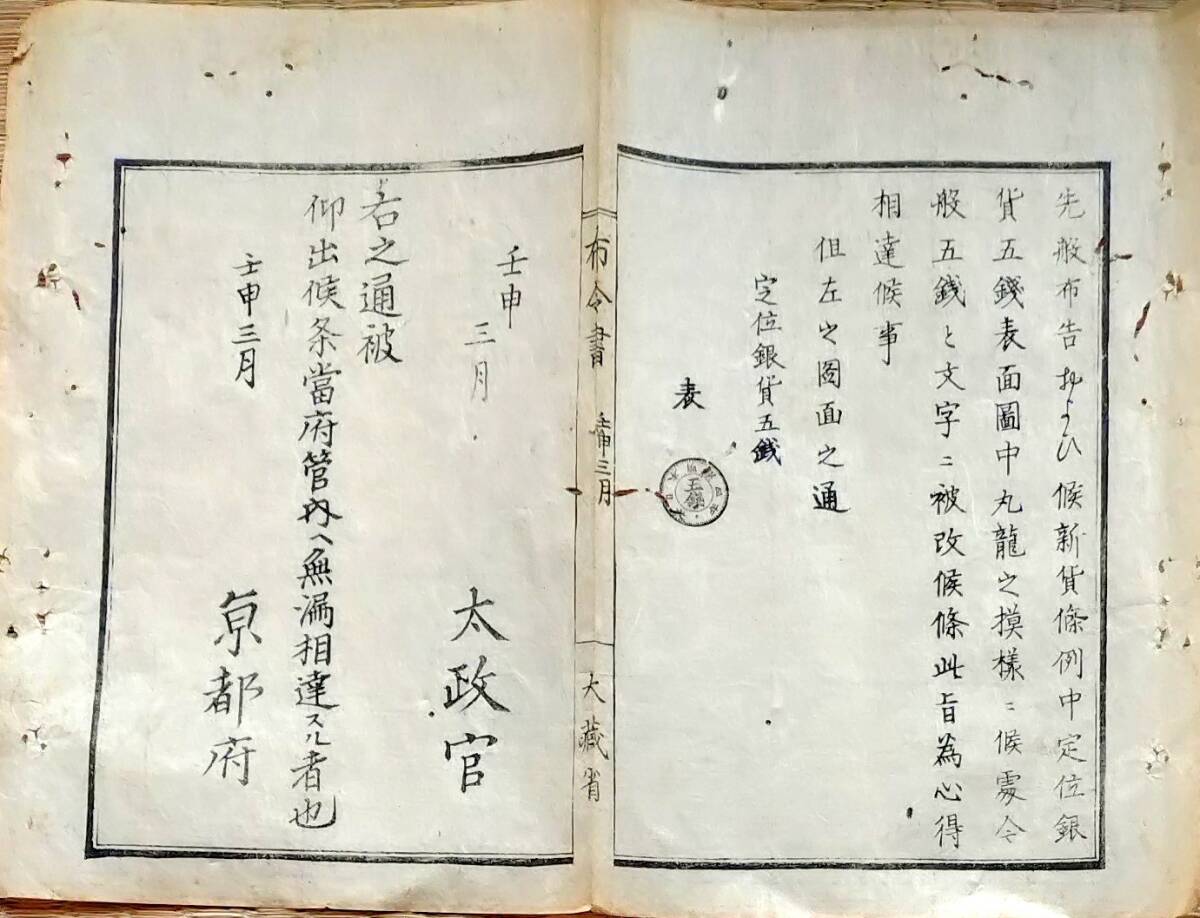 先般布告およひ候新貨條例中定位銀
貨五錢表面圖中丸龍之摸様ニ候處今
般五銭と文字ニ被改候條此旨為心得
相達候事
但左之圖面之通
定位銀貨五銭
表
五錢
布令書 壬申三月 大藏省
壬申三月
太政官
右之通被
仰出候条當府管内ヘ無漏相達スル者也
壬申三月
京都府